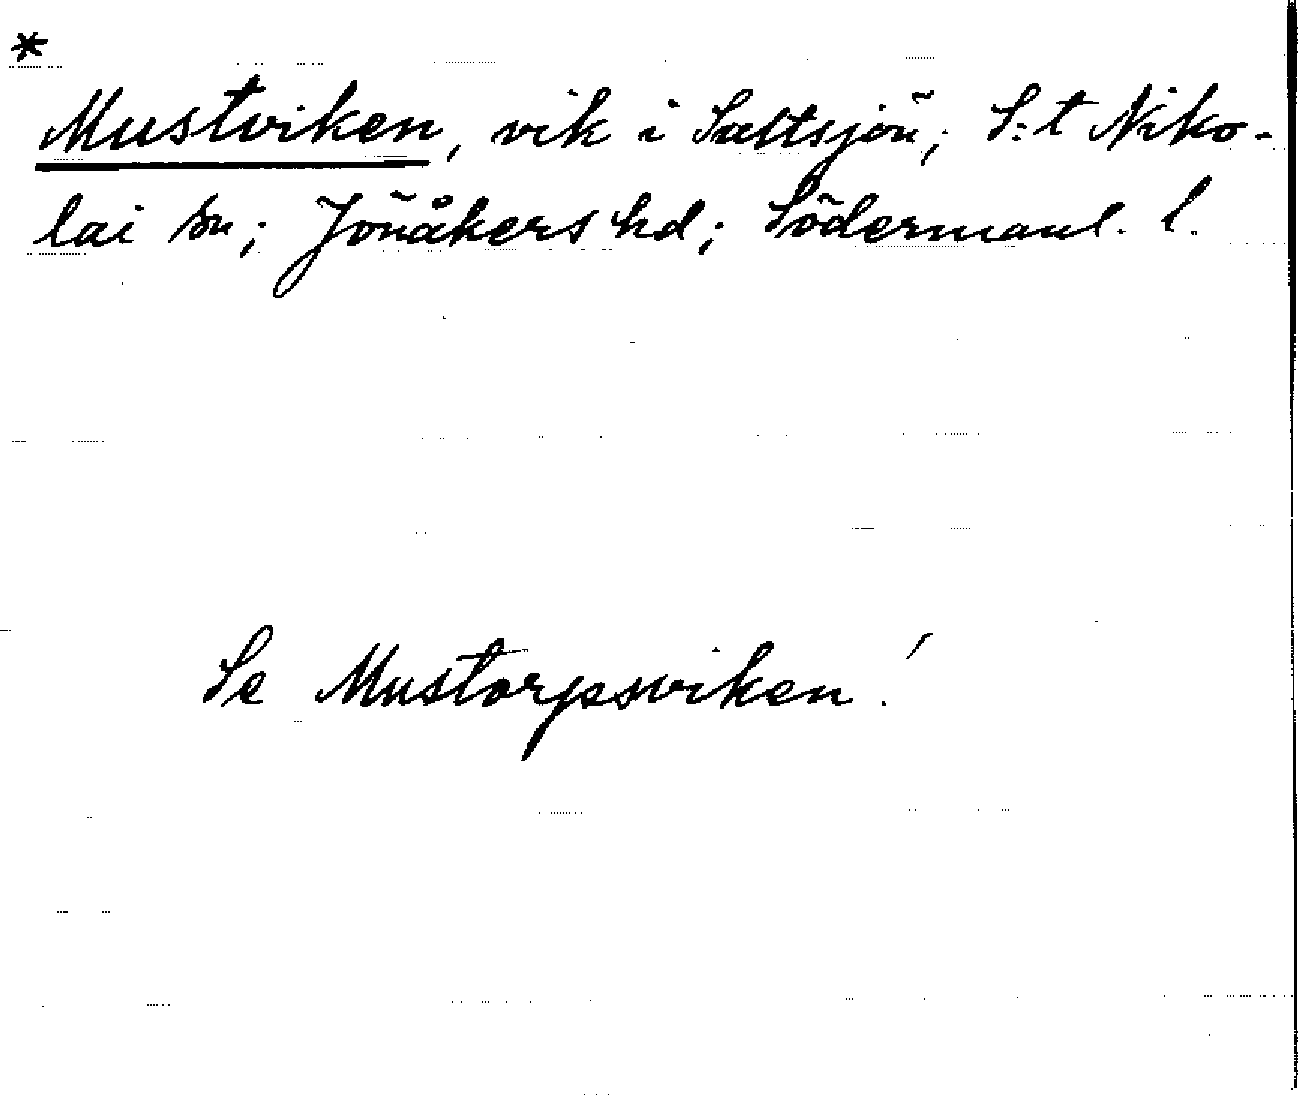 *
Mustviken, vik i Saltsjön; S:t Niko-
lai sn; Jönåkers hd; Södermanl. l.
Se Mustorpsviken!